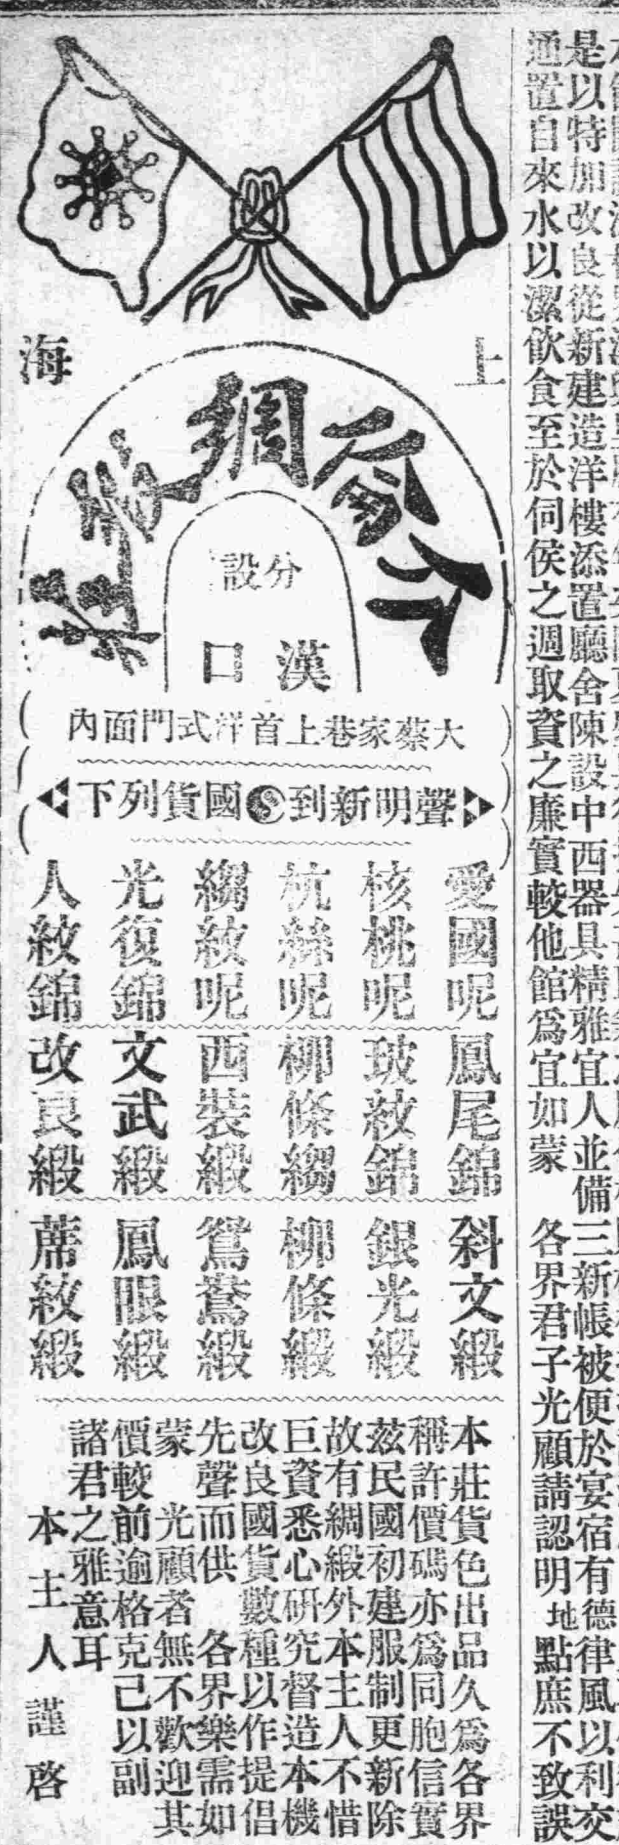 是以特加改良從新建造洋樓添置廳舍陳設中西器具精雅宜人並備三新帳被便於宴宿有德律風以利交
通置自來水以潔飲食至於伺侯之週取資之廉實較他館爲宜如蒙 各界君子光顧請認明地點庶不致誤
上海
介倫綢緞莊
分設
漢口
大蔡家巷上首洋式門面內
聲明新到國貨列下
愛國呢
核桃呢
杭絲呢
縐紋呢
光復錦
人紋錦
鳳尾錦
玻紋錦
柳條縐
西裝緞
文武緞
改良緞
斜文緞
銀光緞
柳條緞
鴛鴦緞
鳳眼緞
蓆紋緞
本莊貨色出品久爲各界
稱許價碼亦爲同胞信實
茲民國初建服制更新除
故有綢緞外本主人不惜
巨資悉心研究督造本機
改良國貨數種以作提倡
先聲而供 各界樂需如
蒙 光顧者無不歡迎其
價較前逾格克己以副
諸君之雅意耳
本主人謹啓